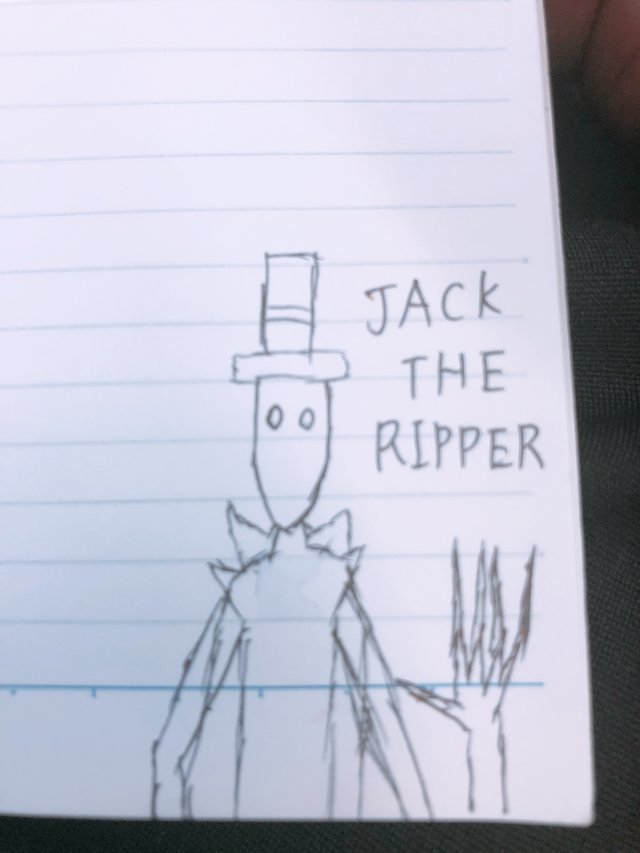 JACK
THE
RIPPER